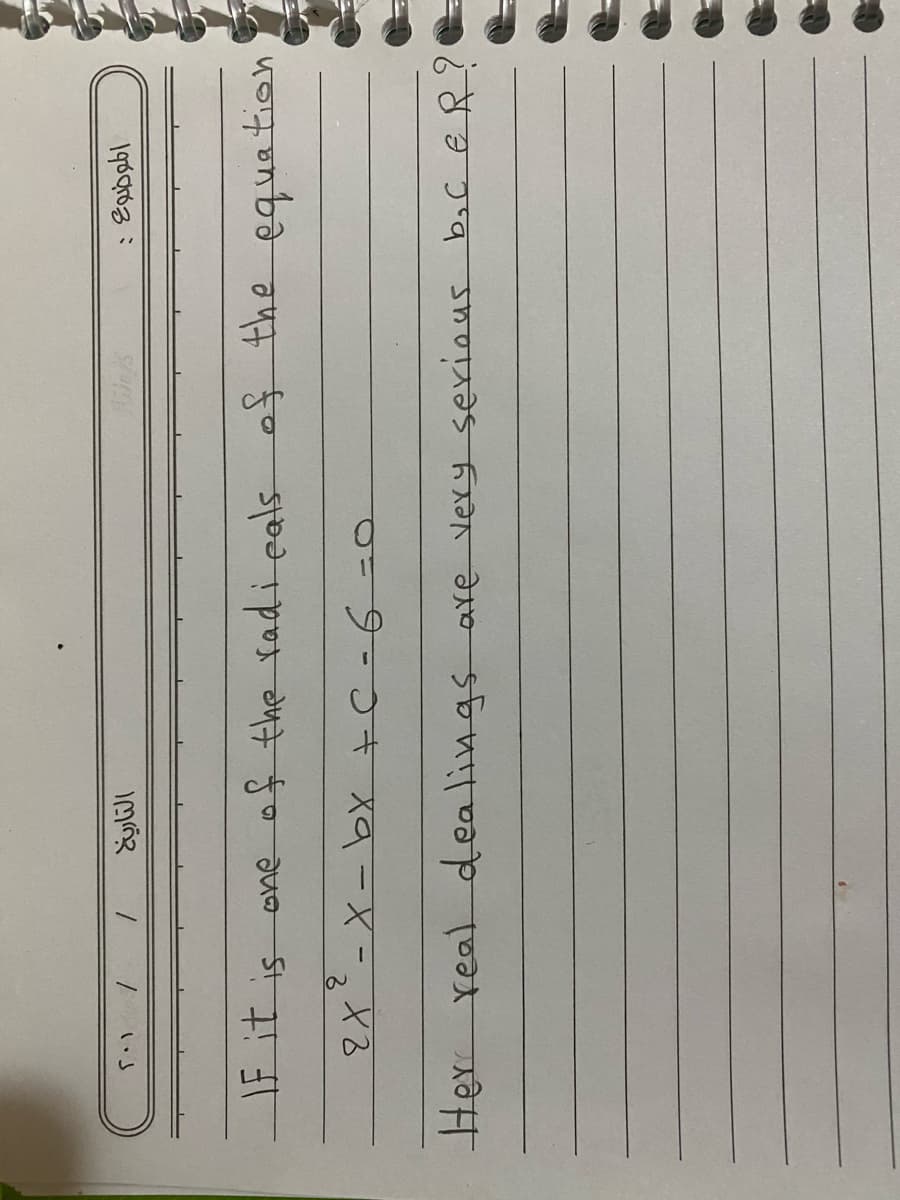 الموضوع :
التاريخ / / ٢٠١
IF it is one of the radicals of the equation
2x² - x - bx + c - 6 = 0
Her real dealings are very serious b,c e R?